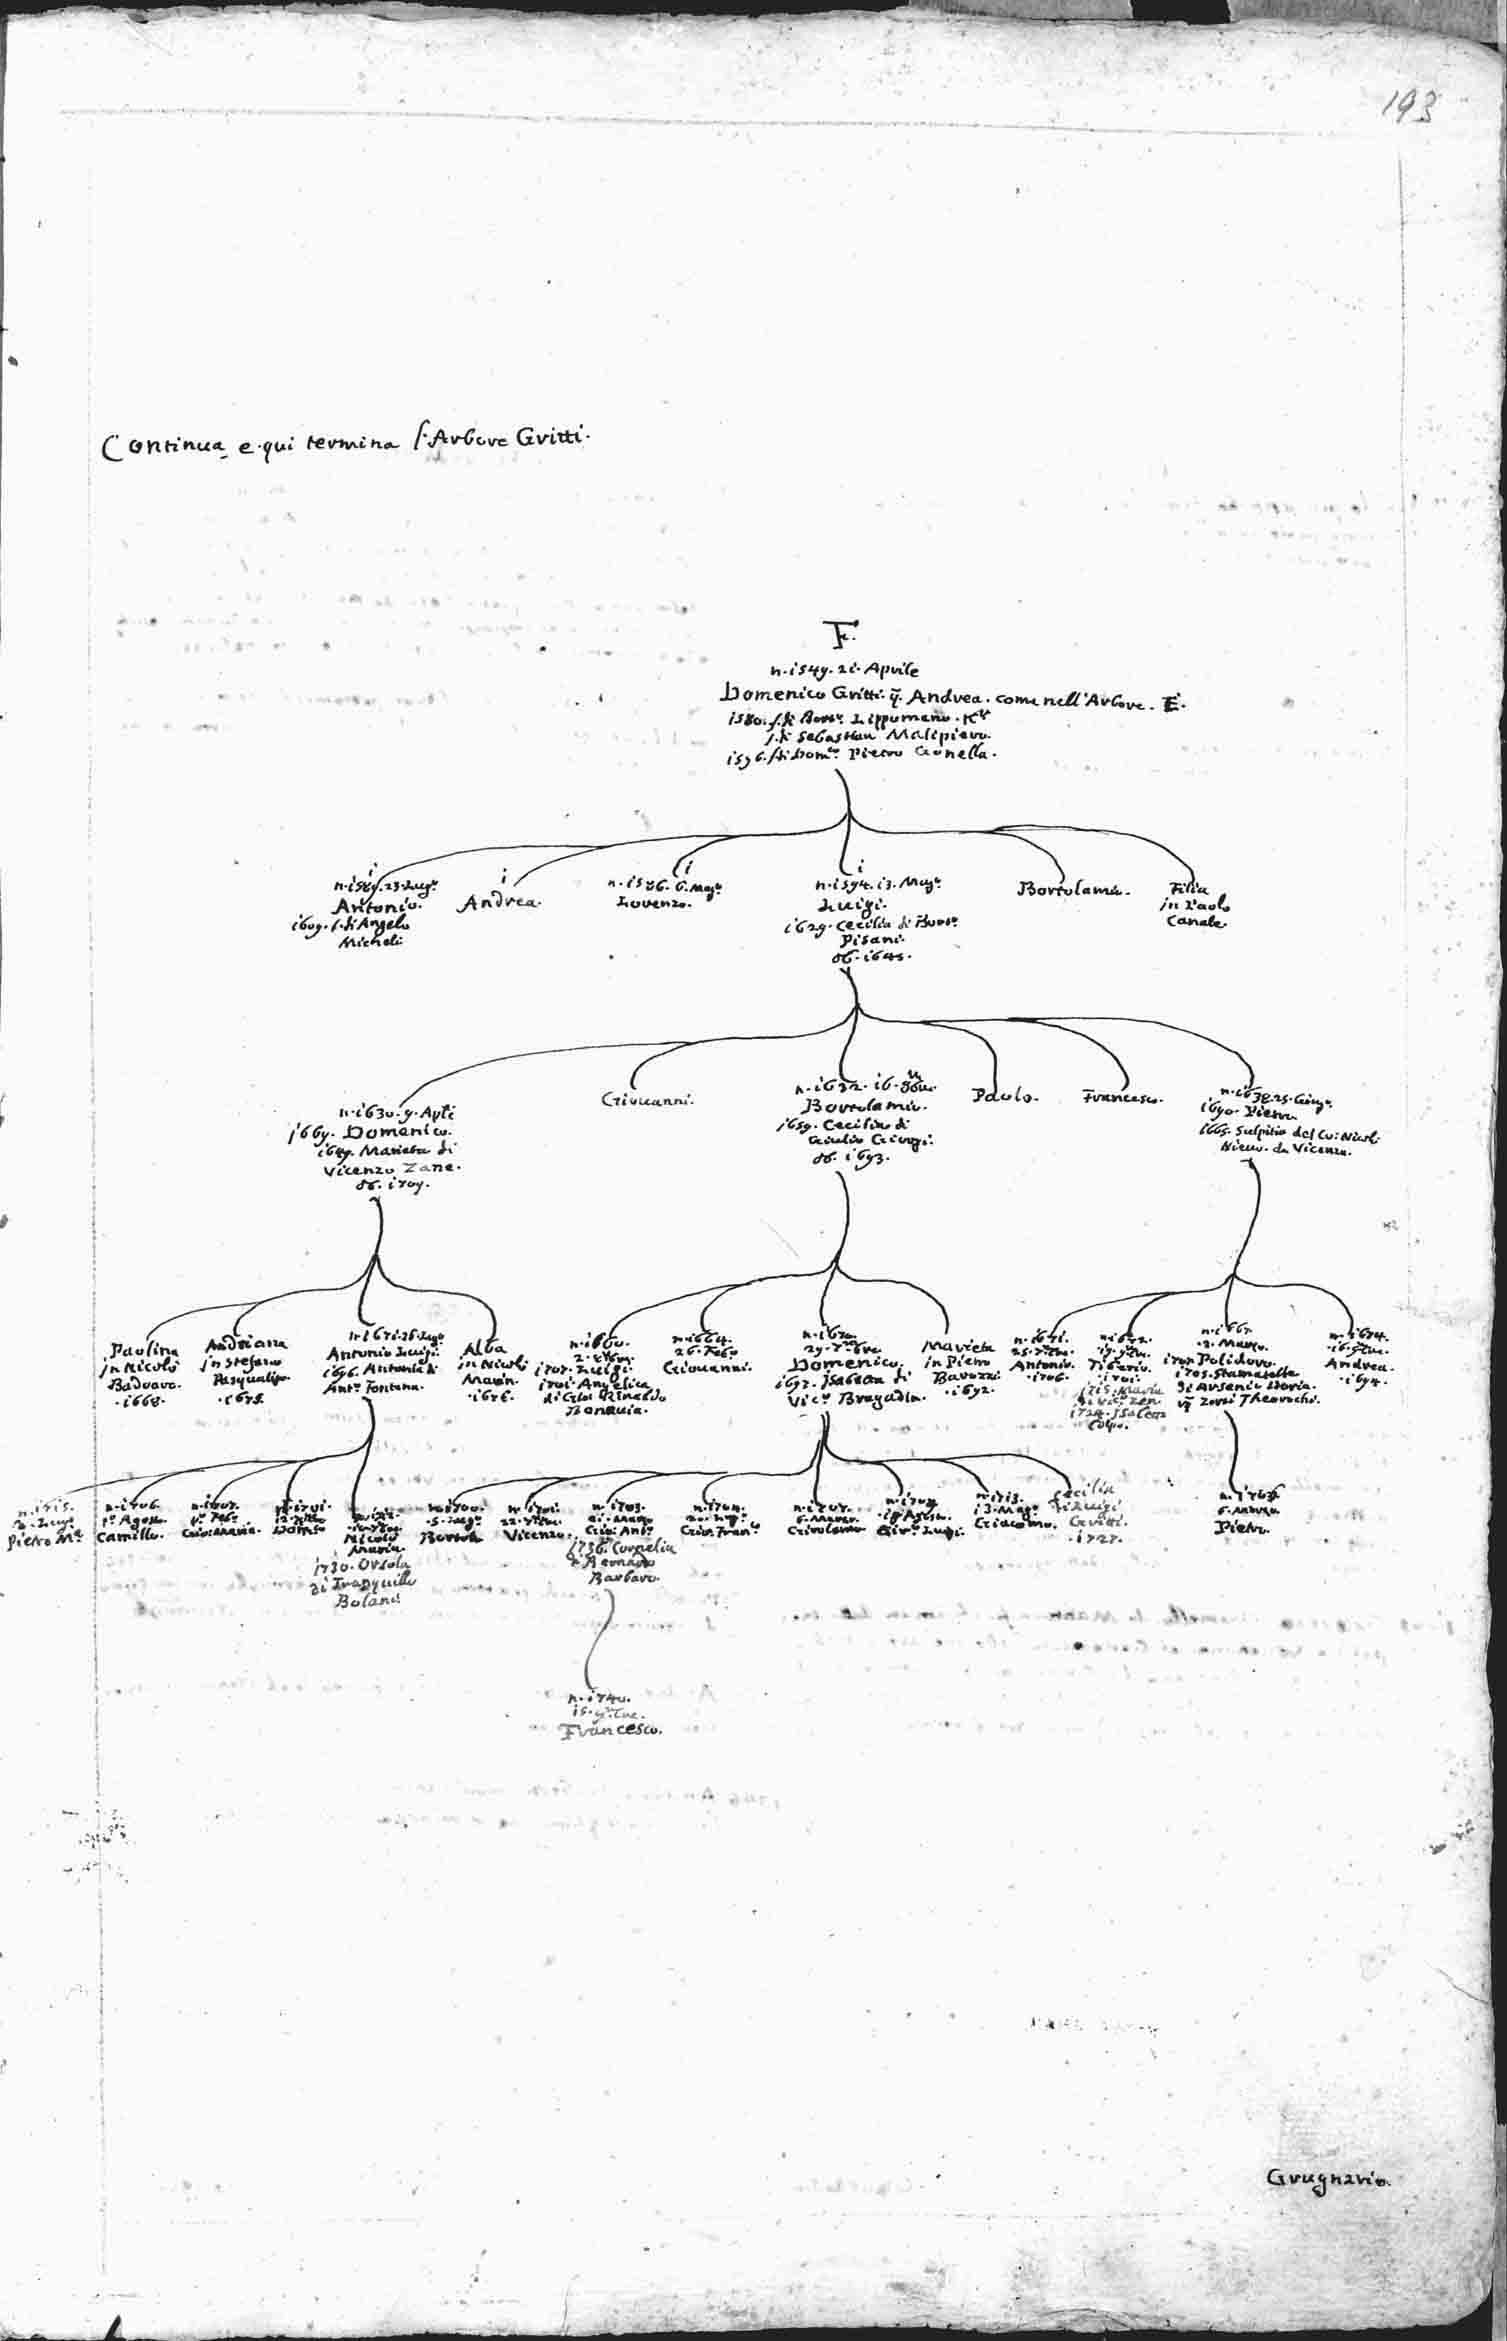 193
Continua e qui termina l'Arbore Gritti.
F.
n. 1549. 21. Aprile
Domenico Gritti q. Andrea. come nell'Arbore. E.
1580. f. di Bort.º Lippomano. K.r
f. di Sebastian Malipiero.
1596. f. di Dom.co Pietro Gonella.
1
n. 1589. 23. Lug.º
Antonio.
1609. f. di Angelo
Micheli
1
Andrea.
1
n. 1586. 6. Mag.º
Lorenzo.
1
n. 1594. 13. Mag.º
Luigi.
1629. Cecilia di Bort.º
Pisani.
ob. 1645.
Bortolamio.
Filia
in Paolo
Canale.
n. 1630. 9. Apli
1669. Domenico.
1649. Marietta di
Vicenzo Zane.
ob. 1709.
Giovanni.
n. 1632. 16.
Bortolamio.
1659. Cecilia di
Giulio Giorgi.
ob. 1693.
Paolo.
Francesco.
n. 1638. 25. Giug.º
1690. Pietro.
1665. Sulpitia del Co: Nicolò
Nievo. da Vicenza.
Paolina
in Nicolò
Badoaro.
. 1668.
Andriana
in Stefano
Pasqualigo
. 1675.
n. 1671. 26. Lug.º
Antonio Luigi.
1696. Antonia di
Ant.º Fontana.
Alba
in Nicolò
Marin.
. 1676.
n. 1660.
2.
1707. Luigi.
1701. Angelica
di Gio: Rinaldo
n. 1664.
26. Feb.º
Giovanni.
n. 1670.
29.
Domenico.
1697. Isabetta di
Vic.º Bragadin.
Marieta
in Pietro
Barozzi
. 1692.
n. 1671.
25.
Antonio.
. 1706.
n. 1672.
19.
Tiberio.
. 1701.
1715. Maria
di Vic.º Zen
1724. Isabetta
n. 1667.
2. Marzo.
1707. Polidoro.
1705. Stamatella
di Arsenio Doria.
q. Zorzi Theorochi.
n. 1674.
16.
Andrea.
. 1694.
n. 1715.
Lug.º
Pietro M.ª
n. 1706.
p.º Agosto
Camillo.
n. 1707.
Feb.º
Gio: Maria.
n. 1701.
12.
Dom.co
Nicolò
Maria.
1730. Orsola
di Tranquillo
Bolani
n. 1700.
5. Lug.º
Bortolo
n. 1701.
22.
Vicenzo.
n. 1703.
21. Marzo
Gio: Ant.º
1736. Cornelia
di Bernardo
Barbaro.
n. 1704.
Gio: Fran.co
n. 1707.
6. Marzo.
Girolamo
Agosto.
Gir.º Luigi.
n. 1713.
13. Mag.º
Giacomo.
Cecilia
in Luigi
Gritti.
. 1727.
6. Marzo.
Pietro.
n. 1740.
Francesco.
Grugnario.